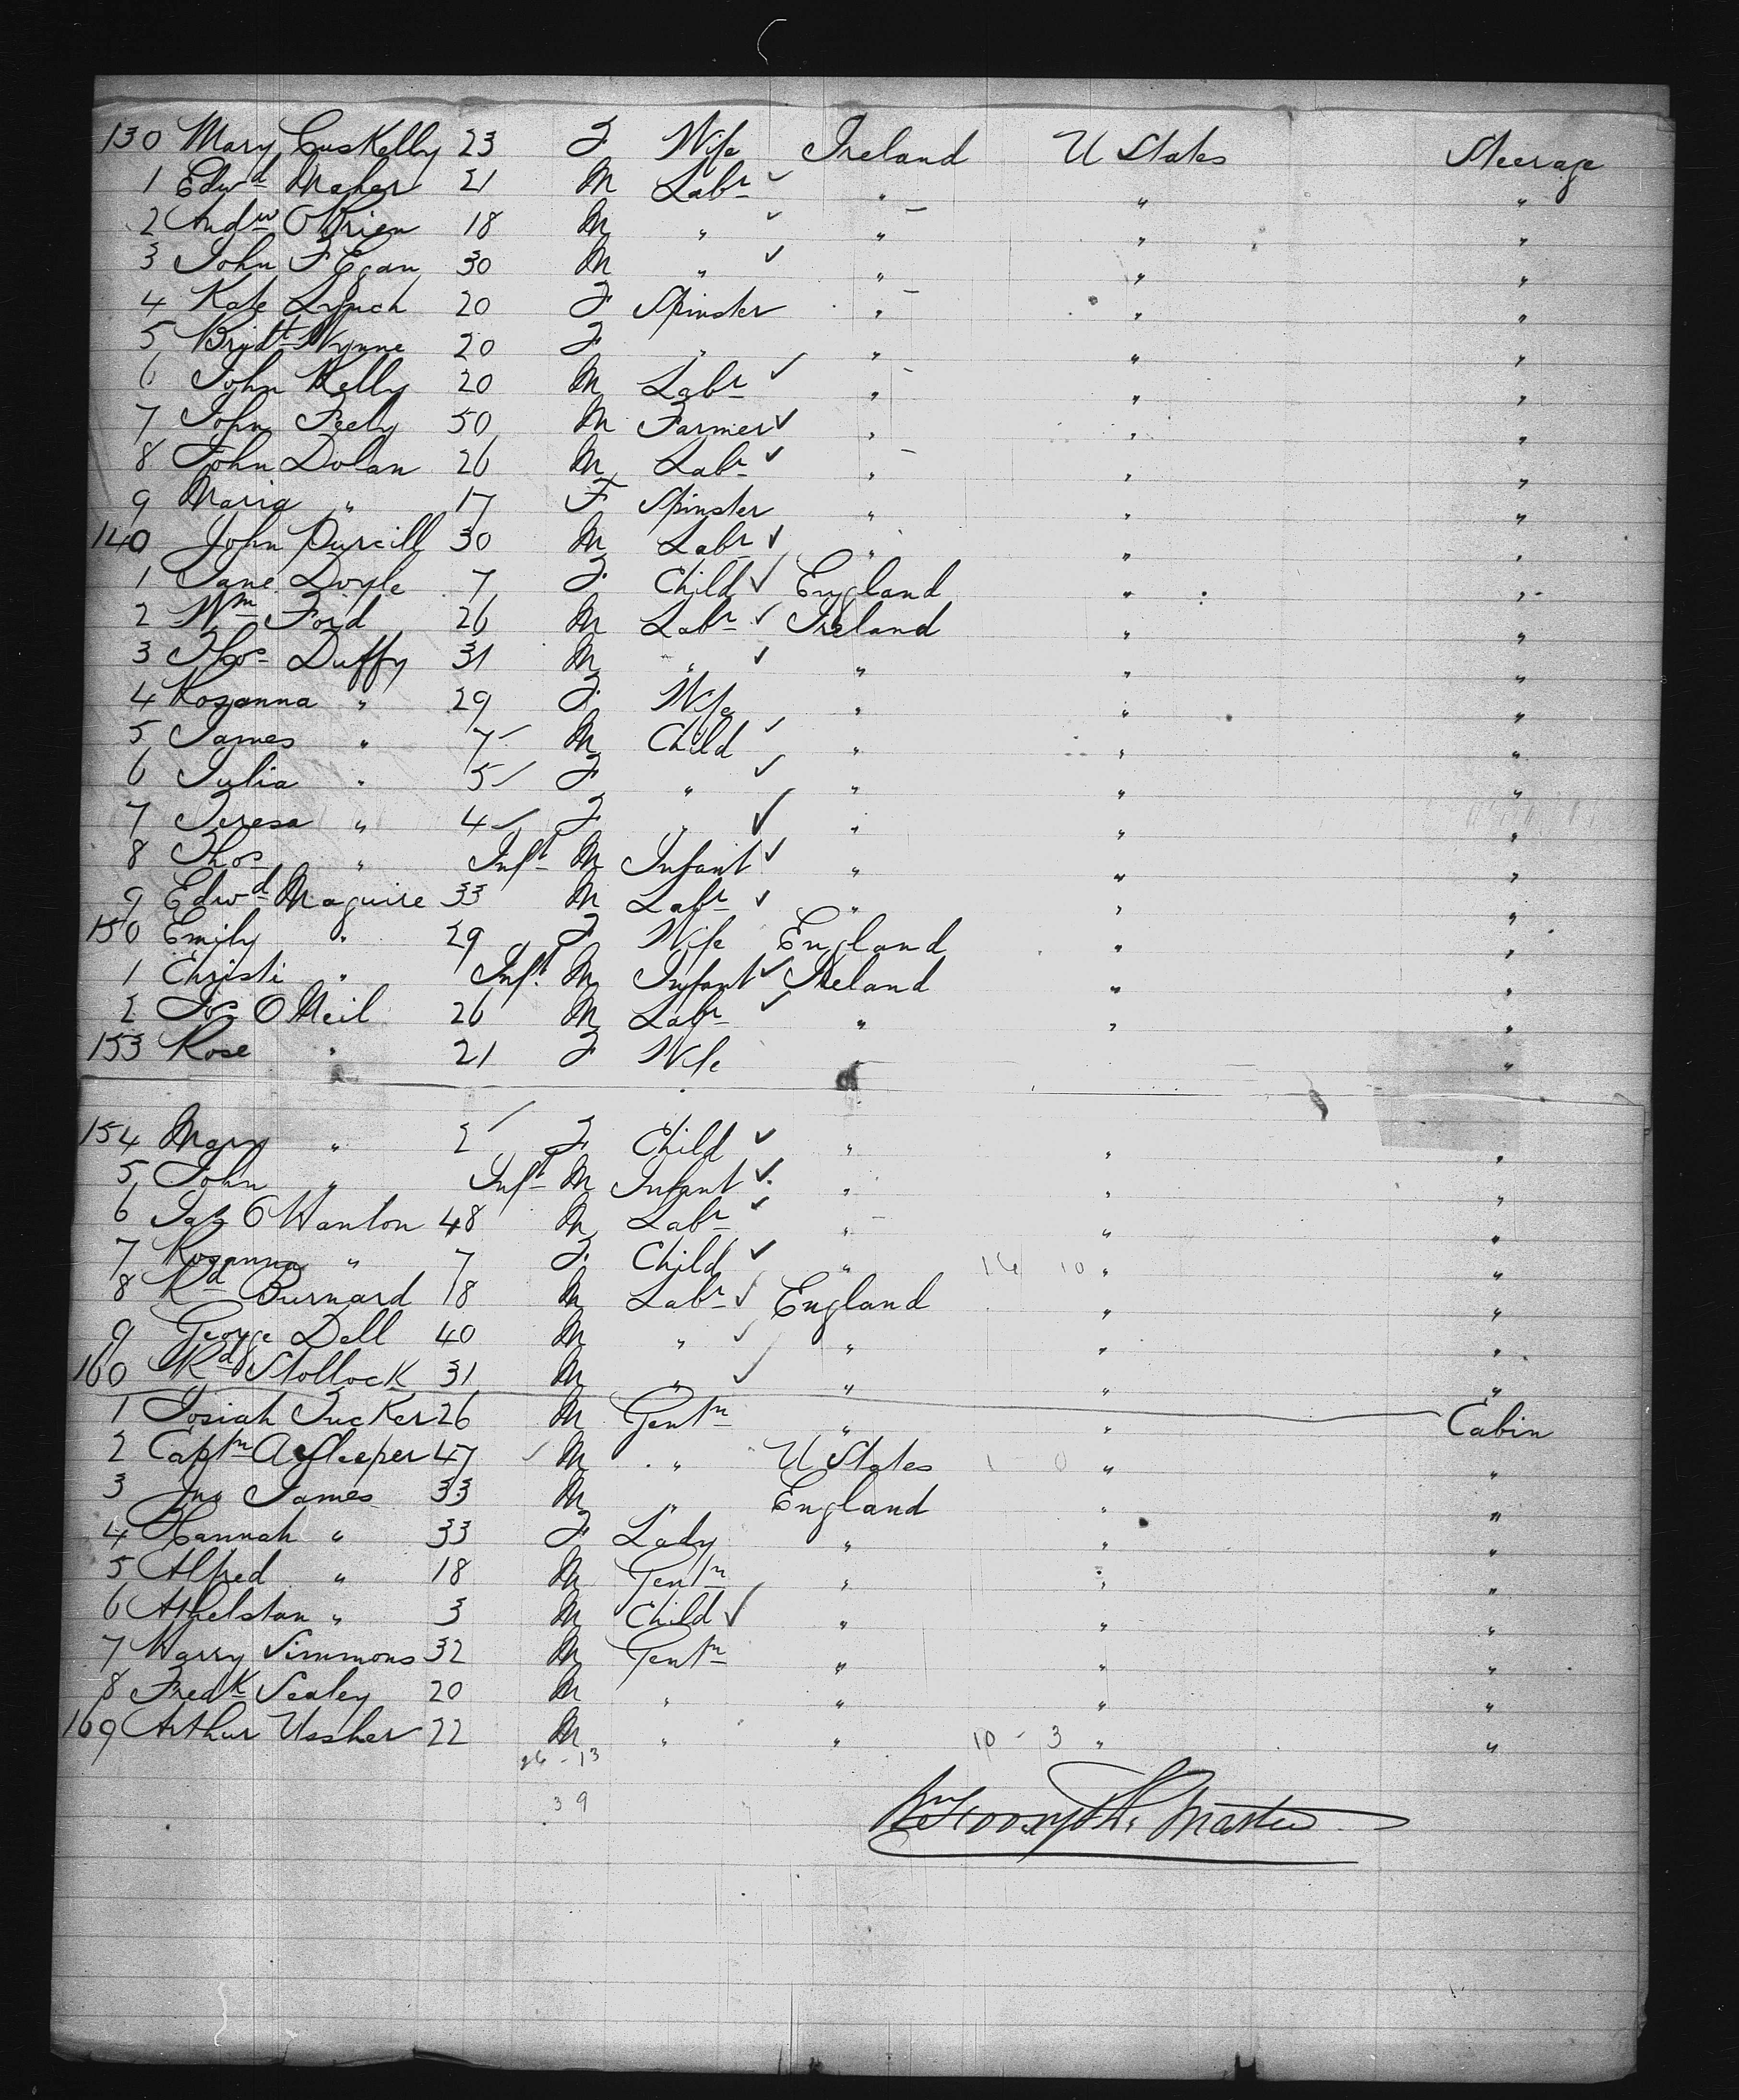 130 Mary CusKelly 23 F Wife Ireland U States Steerage
1 Edwd Maher 21 M Labr " " "
2 Andw O'Brien 18 M " " " "
3 John F Egan 30 M " " " "
4 Kate Lynch 20 F Spinster " " "
5 Bridt Wynne 20 F " " " "
6 John Kelly 20 M Labr " " "
7 John Feely 50 M Farmer " " "
8 John Dolan 26 M Labr " " "
9 Maria " 17 F Spinster " " "
140 John Purcill 30 M Labr " " "
1 Jane Doyle 7 F Child England " "
2 Wm Ford 26 M Labr Ireland " "
3 Thos Duffy 31 M " " " "
4 Rosanna " 29 F Wife " " "
5 James " 7 M Child " " "
6 Julia " 5 F " " " "
7 Teresa " 4 F " " " "
8 Thos " Inft M Infant " " "
9 Edwd Maguire 33 M Labr " " "
150 Emily " 29 F Wife England " "
1 Christi " Inft M Infant Ireland " "
2 Jos O Neil 26 M Labr " " "
153 Rose " 21 F Wife "
154 Mary " 2 F Child " " "
5 John " Inft M Infant " " "
6 Jas O Hanlon 48 M Labr " " "
7 Rosanna " 7 F Child " 14 10 " "
8 Rd Burnard 18 M Labr England " "
9 George Dell 40 M " " " "
160 Rd Stollock 31 M " " " "
1 Josiah Tucker 26 M Gentn " " Cabin
2 Captn A Sleeper 47 M " U States " "
3 Jno James 33 M " England " "
4 Hannah " 33 F Lady " " "
5 Alfred " 18 M Gentn " " "
6 Athelstan " 3 M Child " " "
7 Harry Simmons 32 M Gentn " " "
8 Fredk Sealey 20 M " " " "
169 Arthur Ussher 22 M " " 10 - 3 " "
26 - 13
39
Master